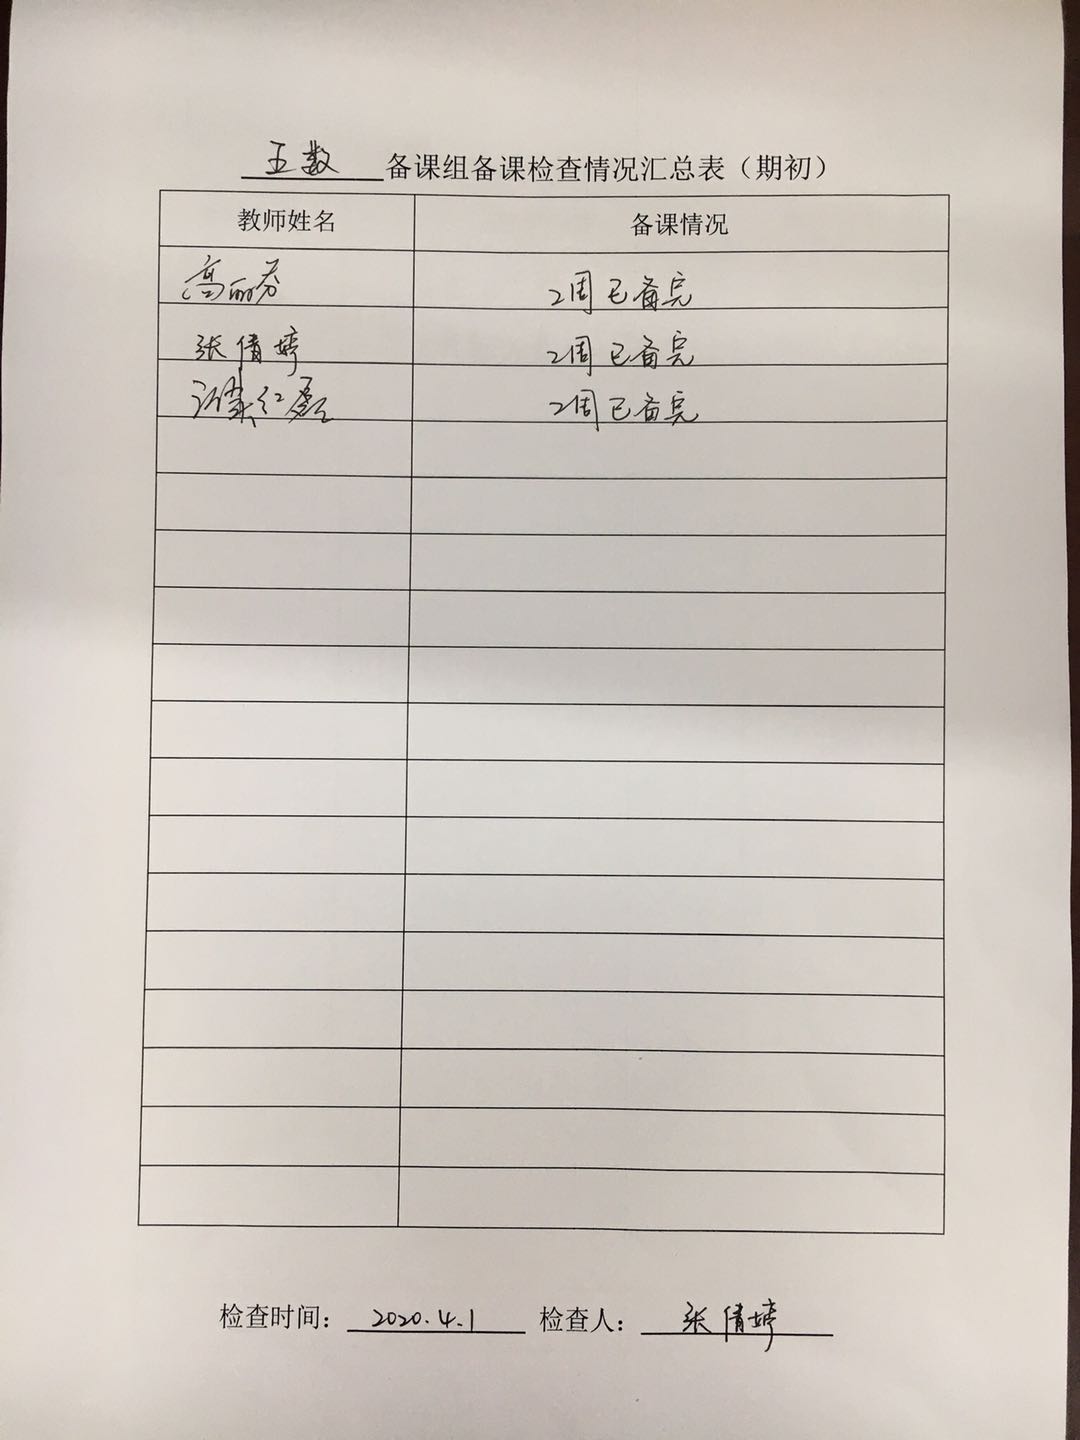 五数 备课组备课检查情况汇总表（期初）
教师姓名 备课情况
高丽芬 2周已备完
张倩婷 2周已备完
2周已备完
检查时间：2020.4.1 检查人：张倩婷